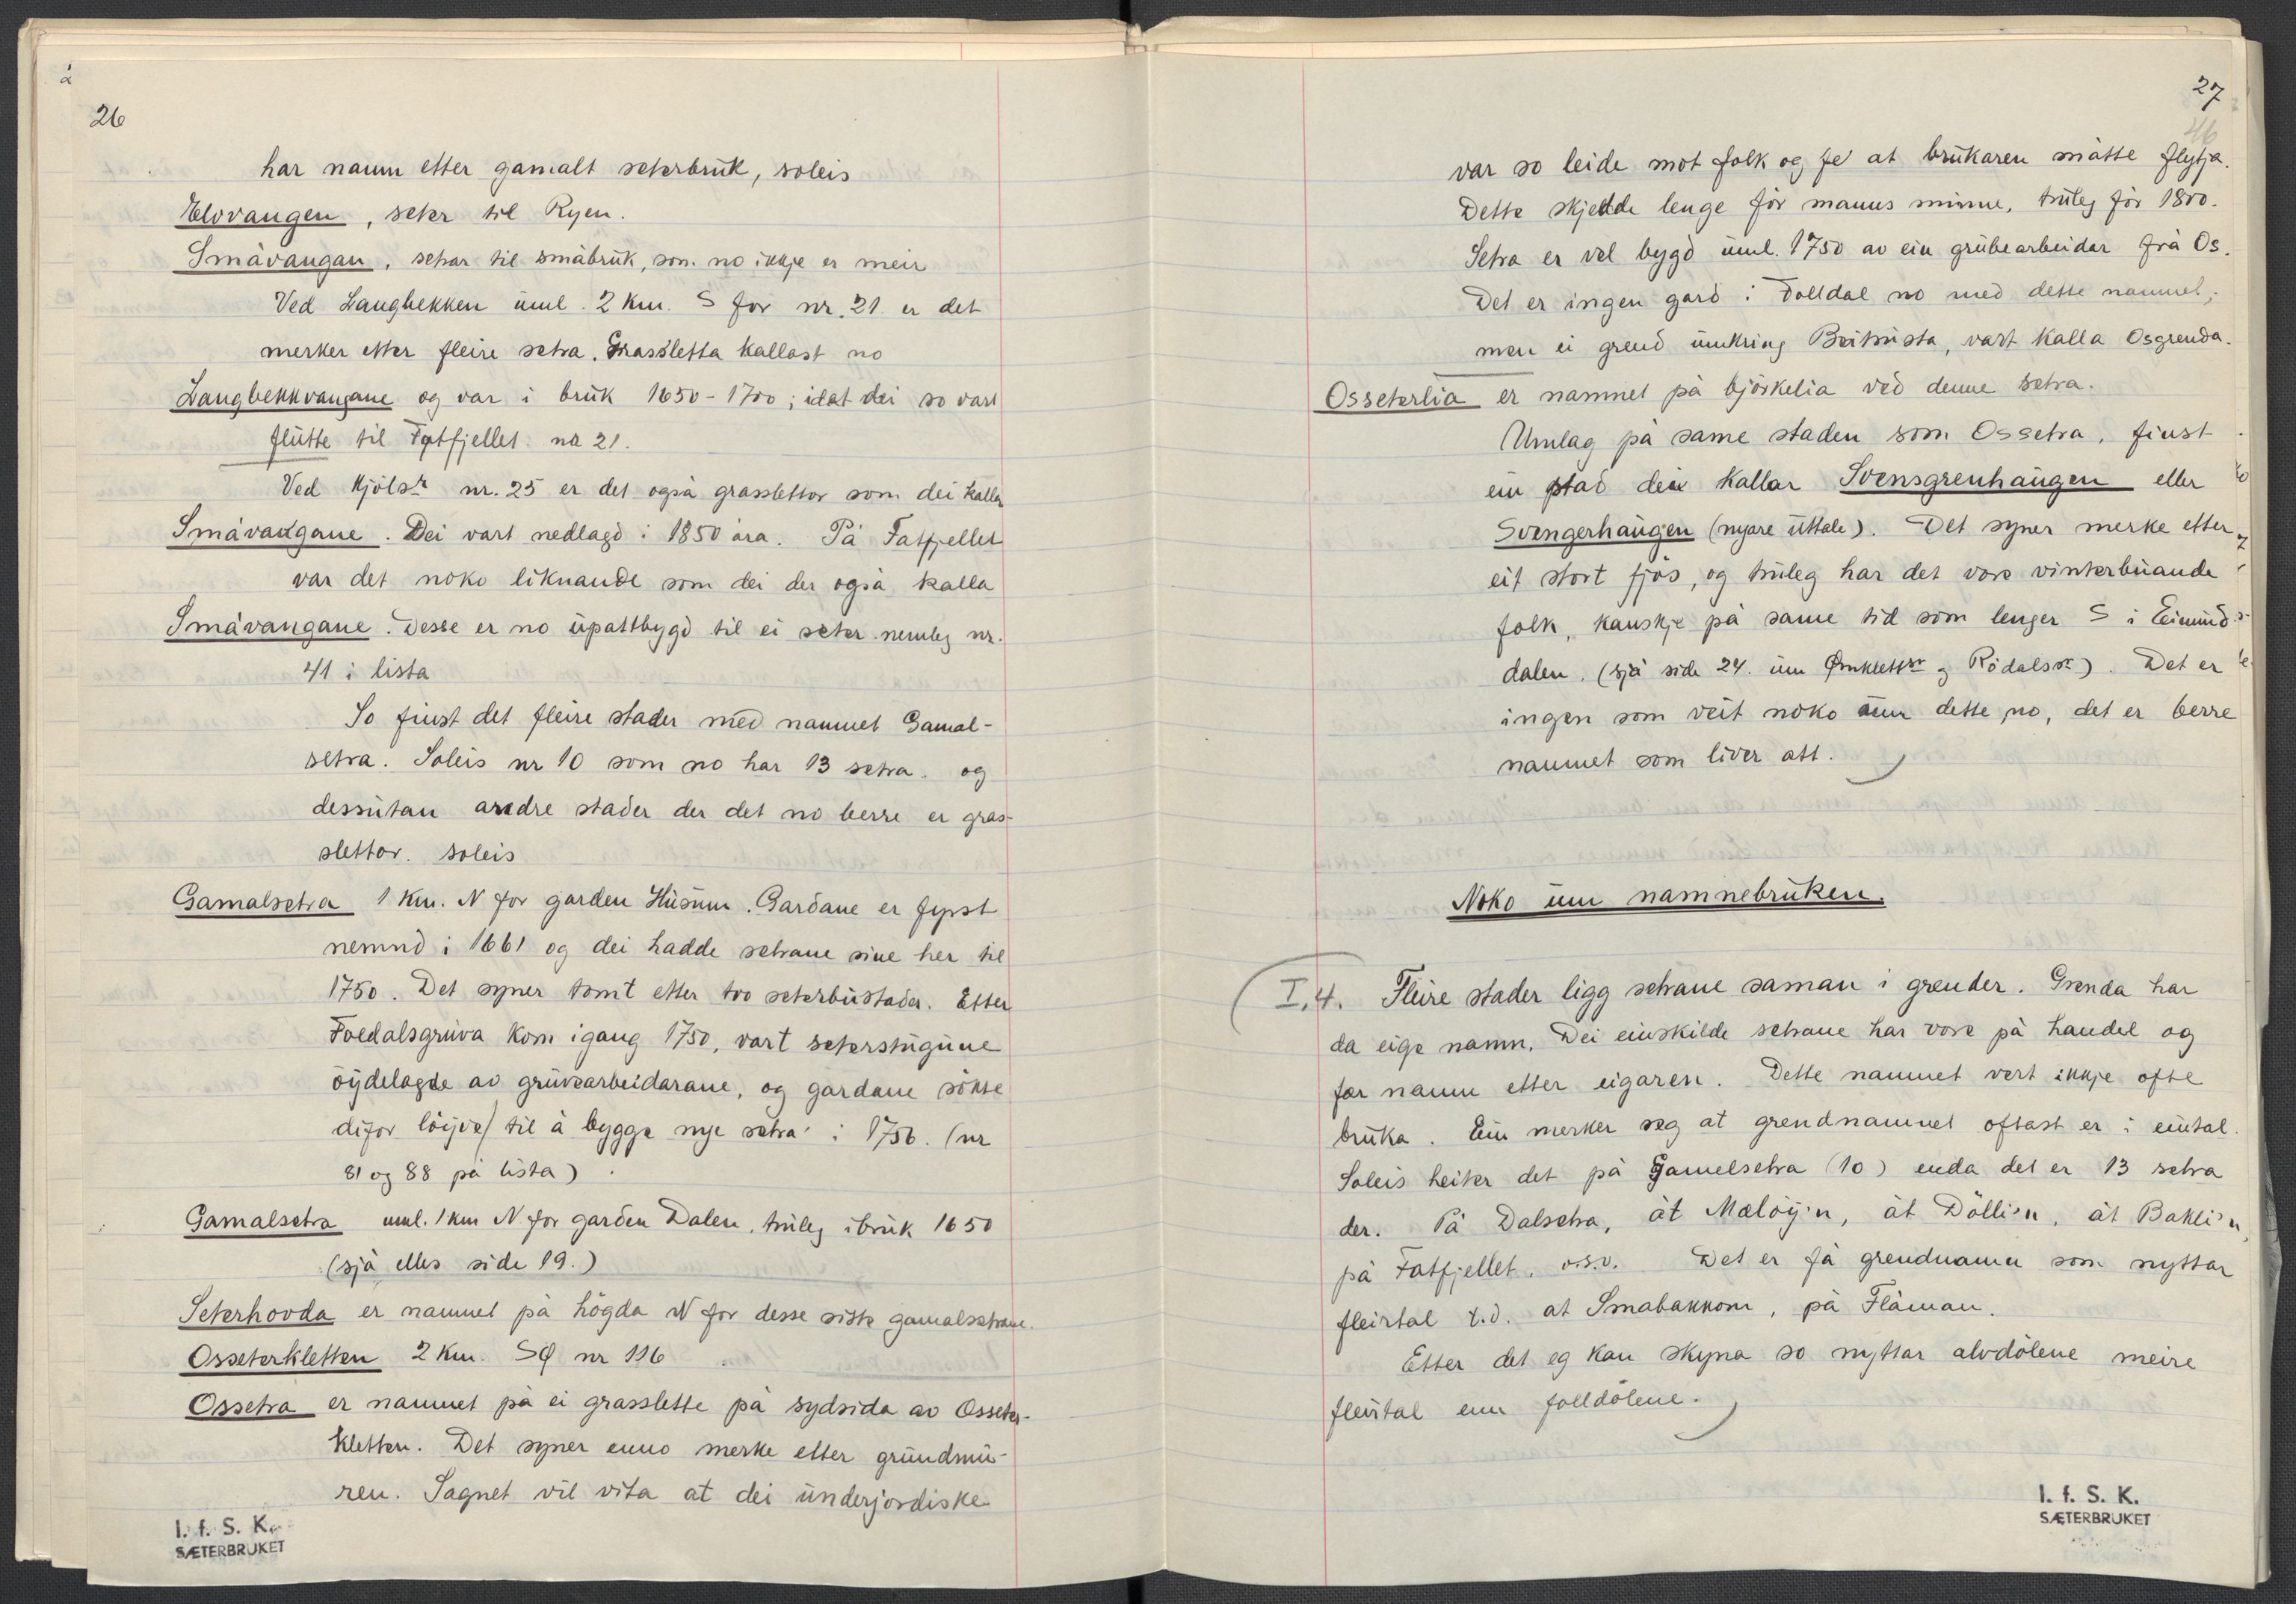 26
har namn etter gamalt seterbruk, soleis
Elvvangen, seter til Ryen.
Småvangan, setrar til småbruk, som no ikkje er meir
Ved Langbekken uml. 2 km. S for nr. 21 er det
merker etter fleire setra. Grassletta kallast no
Langbekkvangane og var i bruk 1650-1700; idet dei so vart
flutte til Fatfjellet nr 21.
Ved Kjölsr nr. 25 er det også grasslettor som dei kallar
Småvangane. Dei vart nedlagd i 1850 åra. På Fatfjellet
var det noko liknande som dei der også kalla
Småvangane. Desse er no upattbygd til ei seter nemleg nr.
41 i lista
So finst det fleire stader med namnet Gamal-
setra. Soleis nr 10 som no har 13 setra. og
dessutan andre stader der det no berre er gras-
slettor. soleis
Gamalsetra 1 km. N for garden Husum. Gardane er fyrst
nemnd i 1661 og dei hadde setrane sine her til
1750. Det syner tomt etter tvo seterbustader. Etter
Foldalsgruva kom igang 1750, vart seterstugune
öydelagde av gruvearbeidarane, og gardane sökte
difor löyve til å bygge nye setra i 1756. (nr
81 og 88 på lista).
Gamalsetra uml. 1 km N for garden Dalen, truleg ibruk 1650
(sjå elles side 19.)
Seterhovda er namnet på högda N for desse siste gamalsetrane.
Osseterkletten 2 km. SØ nr 116
Ossetra er namnet på ei grasslette på sydsida av Osseter-
kletten. Det syner enno merke etter grundmu-
ren. Sagnet vil vita at dei underjordiske
I. f. S. K.
SÆTERBRUKET
27
46
var so leide mot folk og fe at brukaren måtte flytja.
Dette skjedde lenge för manns minne, truleg för 1800.
Setra er vel bygd uml. 1750 av ein grubearbeidar frå Os.
Det er ingen gard i Folldal no med dette namnet;
men ei grend umkring Brutrusta, vart kalla Osgrenda.
Osseterlia er namnet på björkelia ved denne setra.
Umlag på same staden som Ossetra, finst
ein stad dei kallar Svensgrenhaugen eller
Svengerhaugen (nyare uttale). Det syner merke etter
eit stort fjös, og truleg har det vore vinterbuande
folk, kanskje på same tid som lenger S i Einund-
dalen. (sjå side 24. um Ørnklettsr og Rödalssr). Det er
ingen som veit noko um dette no, det er berre
namnet som liver att.
Noko um namnebruken.
I.4. Fleire stader ligg setrane saman i grender. Grenda har
da eige namn. Dei einskilde setrane har vore på handel og
før namn etter eigaren. Dette namnet vert ikkje ofte
bruka. Ein merker seg at grendnamnet oftast er i eintal.
Soleis heiter det på Gamelsetra (10) enda det er 13 setra
der. På Dalsetra, åt Malöy'n, åt Dölli'n, åt Bakli'n,
på Fatfjellet. o.s.v. Det er få grendnamn som nyttar
fleirtal t.d. at Småbakkom, på Flåman.
Etter det eg kan skyna so nyttar alvdölene meire
fleirtal enn folldölene.
I. f. S. K.
SÆTERBRUKET